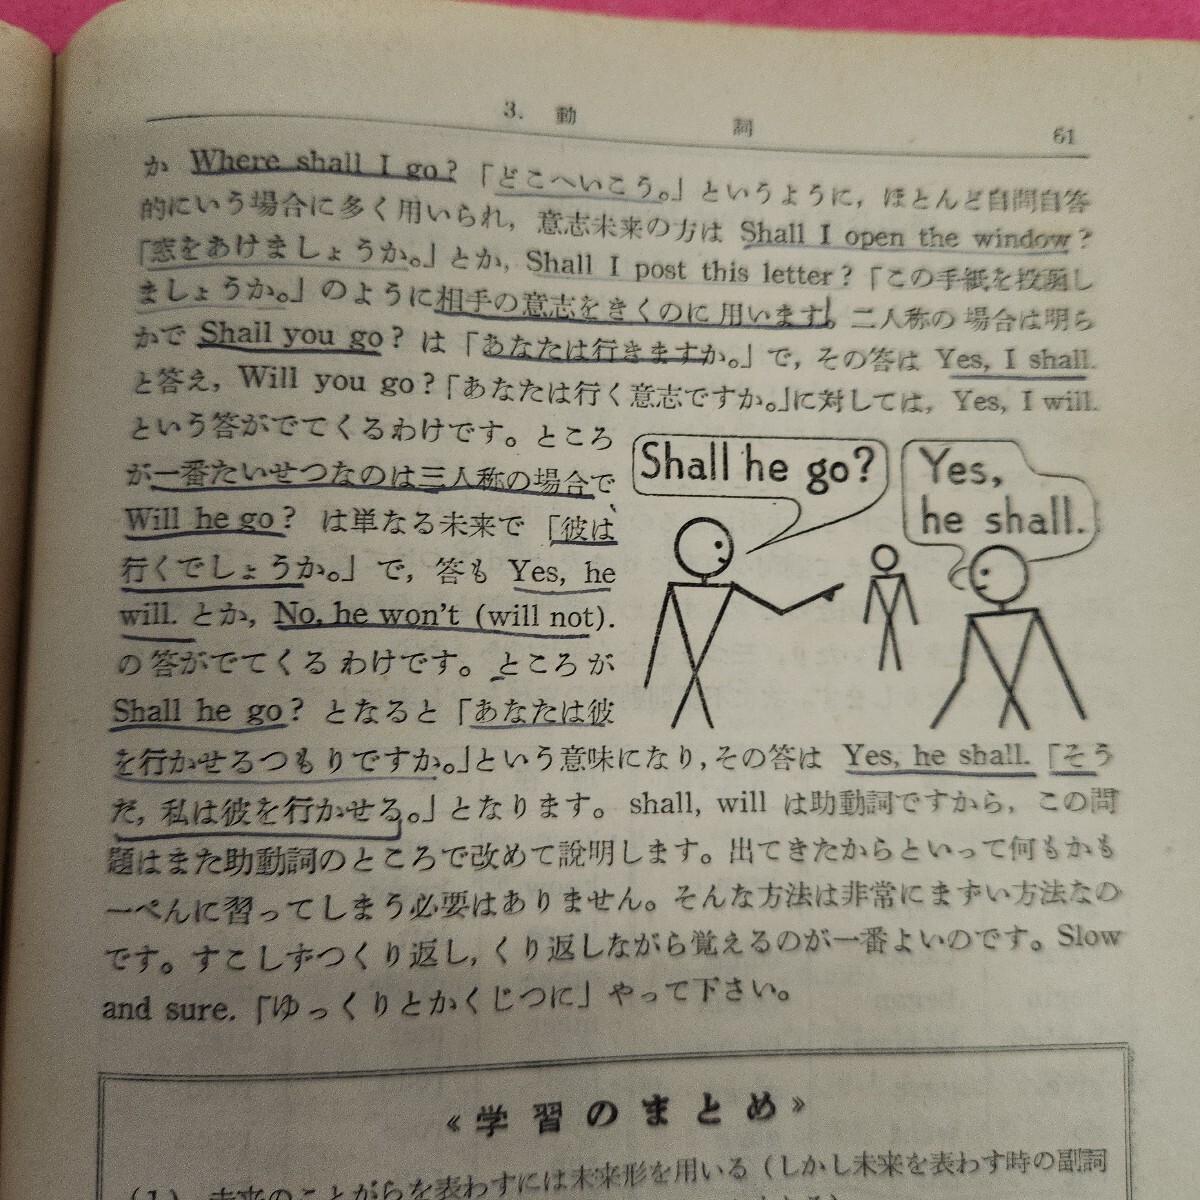 3. 動 詞 61
か Where shall I go?「どこへいこう。」というように，ほとんど自問自答
的にいう場合に多く用いられ，意志未来の方は Shall I open the window?
「窓をあけましょうか。」とか，Shall I post this letter?「この手紙を投函し
ましょうか。」のように相手の意志をきくのに用います。二人称の場合は明ら
かで Shall you go? は「あなたは行きますか。」で，その答は Yes, I shall.
と答え，Will you go?「あなたは行く意志ですか。」に対しては，Yes, I will.
という答がでてくるわけです。ところ
が一番たいせつなのは三人称の場合で、
Will he go? は単なる未来で「彼は
行くでしょうか。」で，答も Yes, he
will. とか，No, he won't (will not).
の答がでてくるわけです。ところが
Shall he go? となると「あなたは彼
を行かせるつもりですか。」という意味になり，その答は Yes, he shall.「そう
だ，私は彼を行かせる。」となります。shall, will は助動詞ですから，この問
題はまた助動詞のところで改めて説明します。出てきたからといって何もかも
一ぺんに習ってしまう必要はありません。そんな方法は非常にまずい方法なの
です。すこしずつくり返し，くり返しながら覚えるのが一番よいのです。Slow
and sure.「ゆっくりとかくじつに」やって下さい。
Shall he go?
Yes,
he shall.
《学習のまとめ》
(1) 未来のことがらを表わすには未来形を用いる（しかし未来を表わす時の副詞